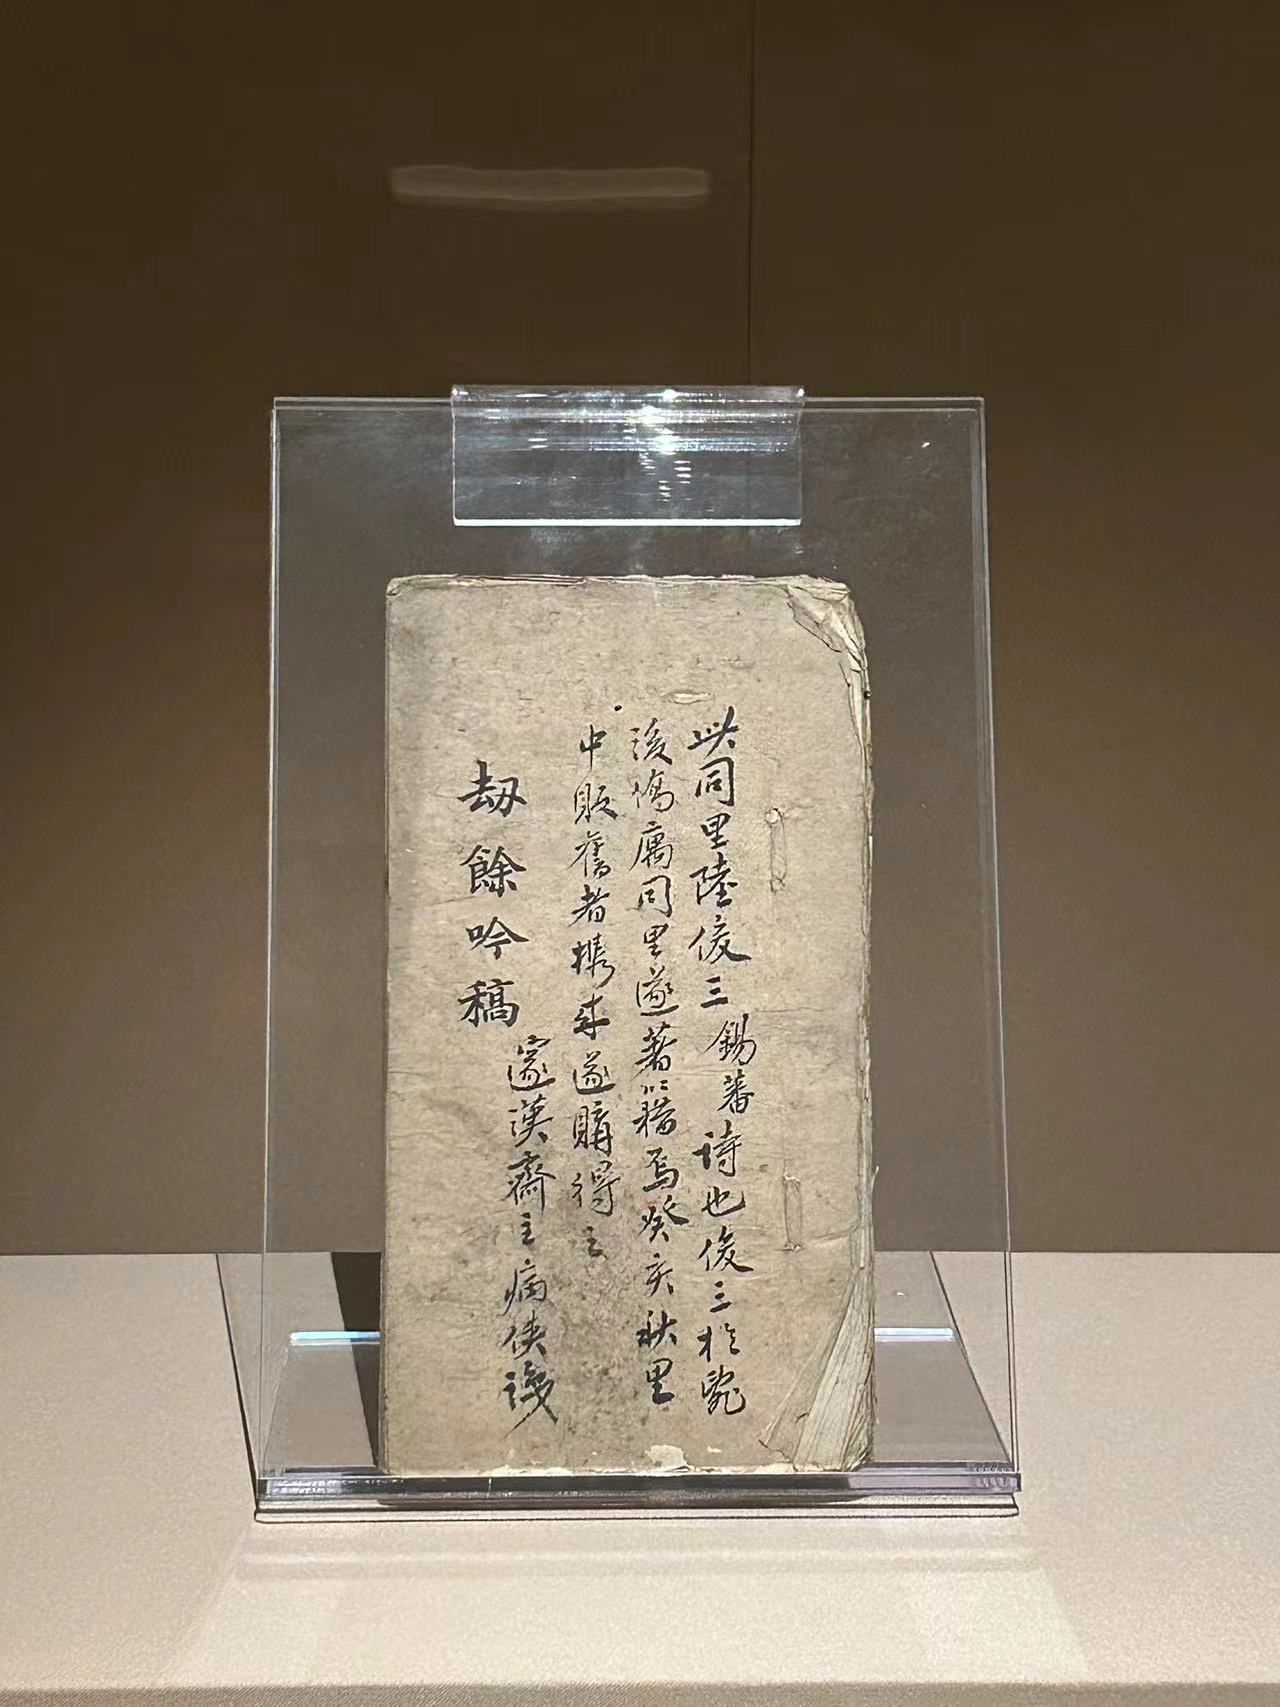 此同里陸俊三錫蕃詩也俊三於毀
後僑寓同里遂著籍焉癸亥秋里
中販舊者攜來遂購得之
劫餘吟稿
邃漢齋主病俠識